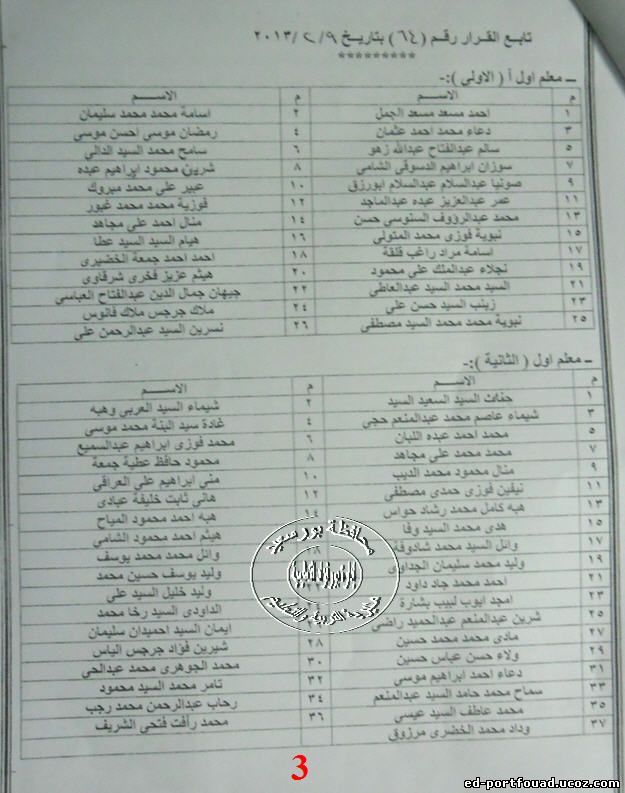 تابع القرار رقم (٦٤) بتاريخ ٢/٩/ ٢٠١٣
*********
ـ معلم اول أ ( الاولى ):-
م الاســـم م الاســـم
١ احمد مسعد مسعد الجمل ٢ اسامة محمد محمد سليمان
٣ دعاء محمد احمد عثمان ٤ رمضان موسى احسن موسى
٥ سالم عبدالفتاح عبدالله زهو ٦ سامح محمد السيد الدالي
٧ سوزان ابراهيم الدسوقى الشامى ٨ شرين محمود ابراهيم عبده
٩ صونيا عبدالسلام عبدالسلام ابورزق ١٠ عبير علي محمد مبروك
١١ عمر عبدالعزيز عبده عبدالماجد ١٢ فوزية محمد محمد غبور
١٣ محمد عبدالرؤوف السنوسى حسن ١٤ منال احمد على مجاهد
١٥ نبوية فوزى محمد المتولى ١٦ هيام السيد السيد عطا
١٧ اسامة مراد راغب قلقة ١٨ احمد احمد جمعة الخضيرى
١٩ نجلاء عبدالملك علي محمود ٢٠ هيثم عزيز فخرى شرقاوى
٢١ السيد محمد السيد عبدالعاطى ٢٢ جيهان جمال الدين عبدالفتاح العباسي
٢٣ زينب السيد حسن علي ٢٤ ملاك جرجس ملاك فانوس
٢٥ نبوية محمد محمد السيد مصطفى ٢٦ نسرين السيد عبدالرحمن علي
ـ معلم اول ( الثانية ):-
م الاســـم م الاســـم
١ حنان السيد السعيد السيد ٢ شيماء السيد العربي وهبه
٣ شيماء عاصم محمد عبدالمنعم حجى ٤ غادة سيد البنة محمد موسى
٥ محمد احمد عبده اللبان ٦ محمد فوزى ابراهيم عبدالسميع
٧ محمد محمد على مجاهد ٨ محمود حافظ عطية جمعة
٩ منال محمود محمد الديب ١٠ منى ابراهيم على العراقى
١١ نيفين فوزى حمدى مصطفى ١٢ هانى ثابت خليفة عبادى
١٣ هبه كامل محمد رشاد حواس ١٤ هبه احمد محمود المياح
١٥ هدى محمد السيد وفا هيثم احمد محمود الشامى
١٧ وائل السيد محمد شادوفة وائل محمد محمد يوسف
١٩ وليد محمد سليمان الجداوى وليد يوسف حسين محمد
٢١ احمد محمد جاد داود وليد خليل السيد على
٢٣ امجد ايوب لبيب بشارة الداودى السيد رخا محمد
٢٥ شرين عبدالمنعم عبدالحميد راضى ايمان السيد احميدان سليمان
٢٧ مادى محمد محمد حسين ٢٨ شيرين فؤاد جرجس الياس
٢٩ ولاء حسن عباس حسين ٣٠ محمد الجوهرى محمد عبدالحى
٣١ دعاء احمد ابراهيم موسى ٣٢ تامر محمد السيد محمود
٣٣ سماح محمد حامد السيد عبدالمنعم ٣٤ رحاب عبدالرحمن محمد رجب
٣٥ محمد عاطف السيد عيسى ٣٦ محمد رأفت فتحى الشريف
٣٧ وداد محمد الخضرى مرزوق
محافظة بورسعيد
مديرية التربية والتعليم
3
ed-portfouad.ucoz.com